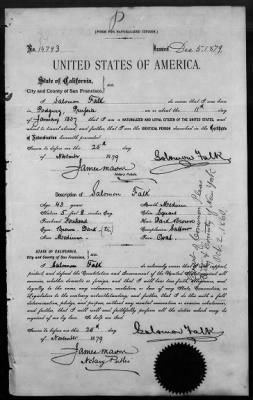 (FORM FOR NATURALIZED CITIZEN.)
No. 14743 Issued Dec 5. 1879.
UNITED STATES OF AMERICA.
State of California,
City and County of San Francisco.
I, Salomon Falk do swear that I was born
in Prussia, on or about the 11th day
of January 1837 that I am a NATURALIZED AND LOYAL CITIZEN OF THE UNITED STATES, and
about to travel abroad; and further, that I am the IDENTICAL PERSON described in the Certificate
of Naturalization herewith presented.
Sworn to before me this 28th day
of November 1879
James Mason Salomon Falk
Notary Public.
Description of Salomon Falk
Age 43 years Mouth Medium
Stature 5 feet 2 Eng. Chin Square
Forehead Hair Dark Brown
Eyes Brown Dark Complexion Sallow
Nose Medium Face Oval
STATE OF CALIFORNIA,
City and County of San Francisco,
I, Salomon Falk do solemnly swear that I will support,
protect, and defend the Constitution and Government of the United States against all
enemies, whether domestic or foreign, and that I will bear true faith, allegiance, and
loyalty to the same, any ordinance, resolution, or law of any State, Convention, or
Legislature to the contrary notwithstanding; and further, that I do this with a full
determination, pledge, and purpose, without any mental reservation or evasion whatsoever;
and further, that I will well and faithfully perform all the duties which may be
required of me by law. So help me God.
Sworn to before me this 28th day
of November 1879 Salomon Falk
James Mason
Notary Public